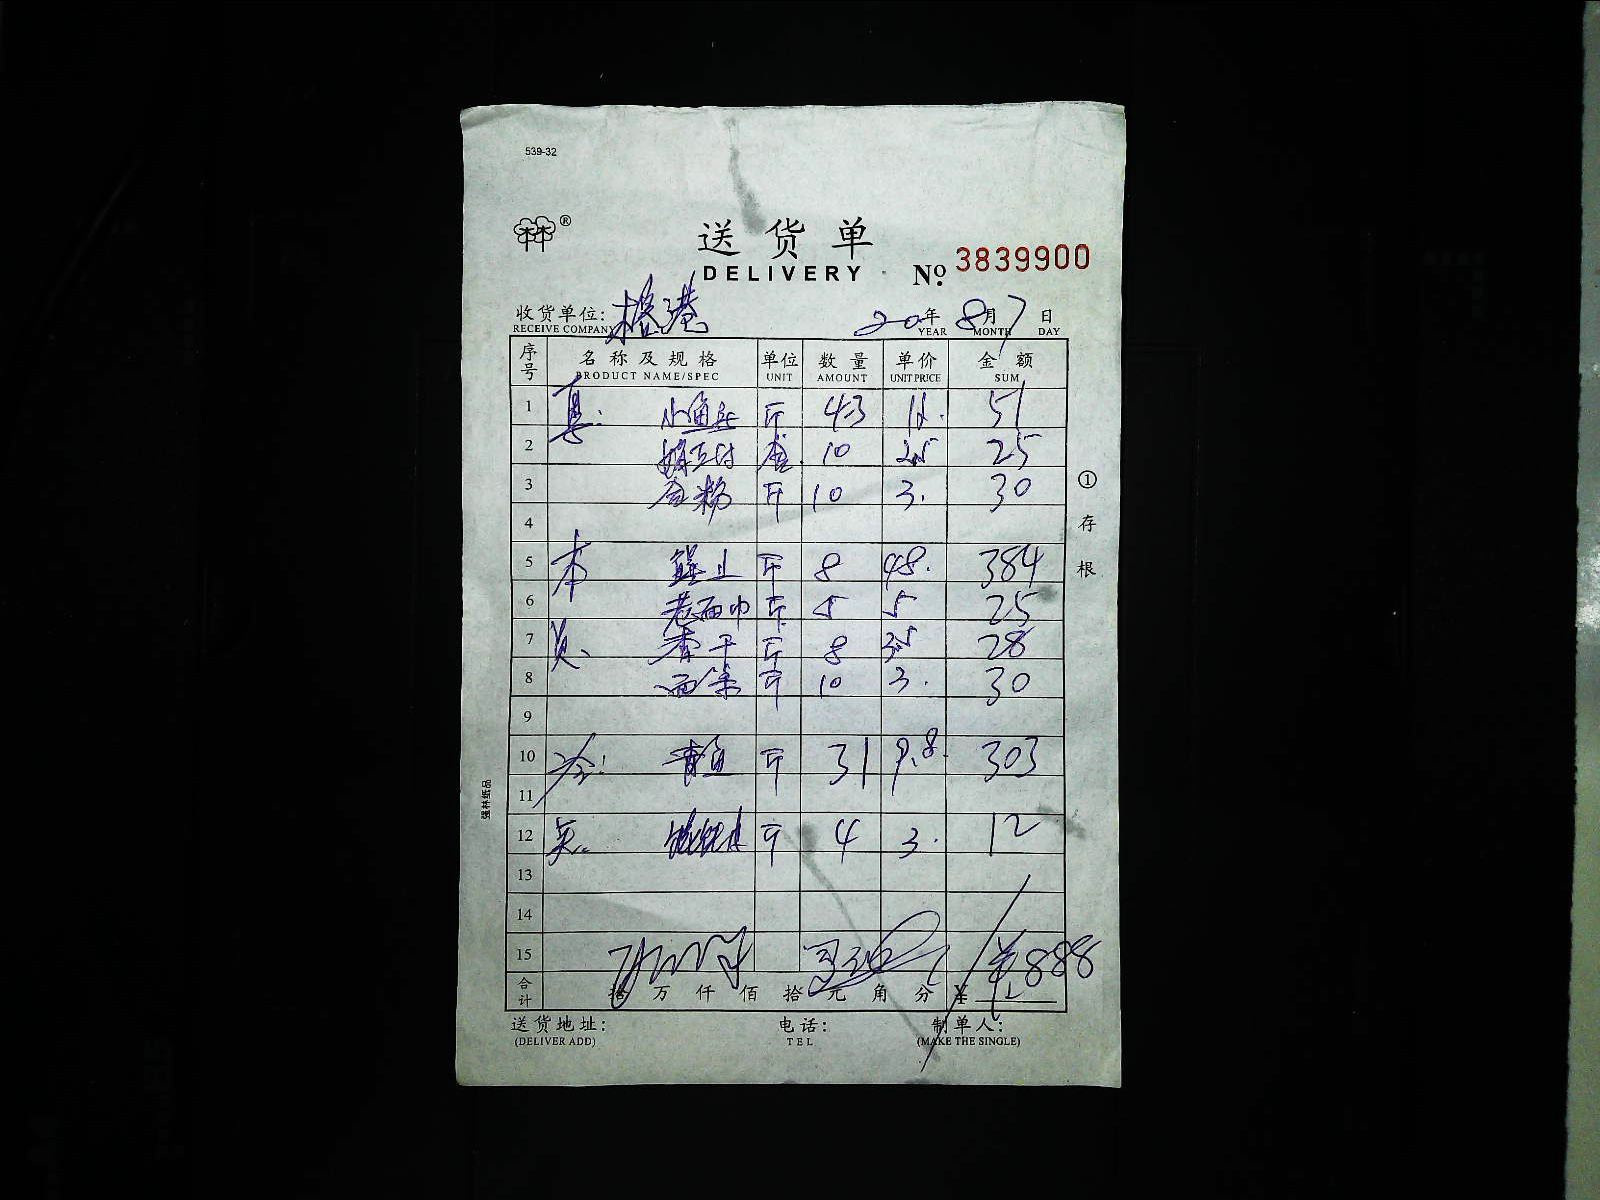 539-32
林林®
送货单
DELIVERY № 3839900
收货单位: 榕港 20年 8月 7日
RECEIVE COMPANY YEAR MONTH DAY
序号 名称及规格 单位 数量 单价 金额
PRODUCT NAME/SPEC UNIT AMOUNT UNIT PRICE SUM
1 小鱼 斤 43 12. 51
2 10 2.5 25
3 粉 斤 10 3. 30
4
5 斤 8 48. 384
6 斤 5 5 25
7 香干 斤 8 3.5 28
8 面条 斤 10 3. 30
9
10 青鱼 斤 31 9.8 303
11
12 斤 4 3. 12
13
14
15
合计 拾万仟佰拾元角分 ¥ 888
送货地址: 电话: 制单人:
(DELIVER ADD) TEL (MAKE THE SINGLE)
①存根
强林纸品